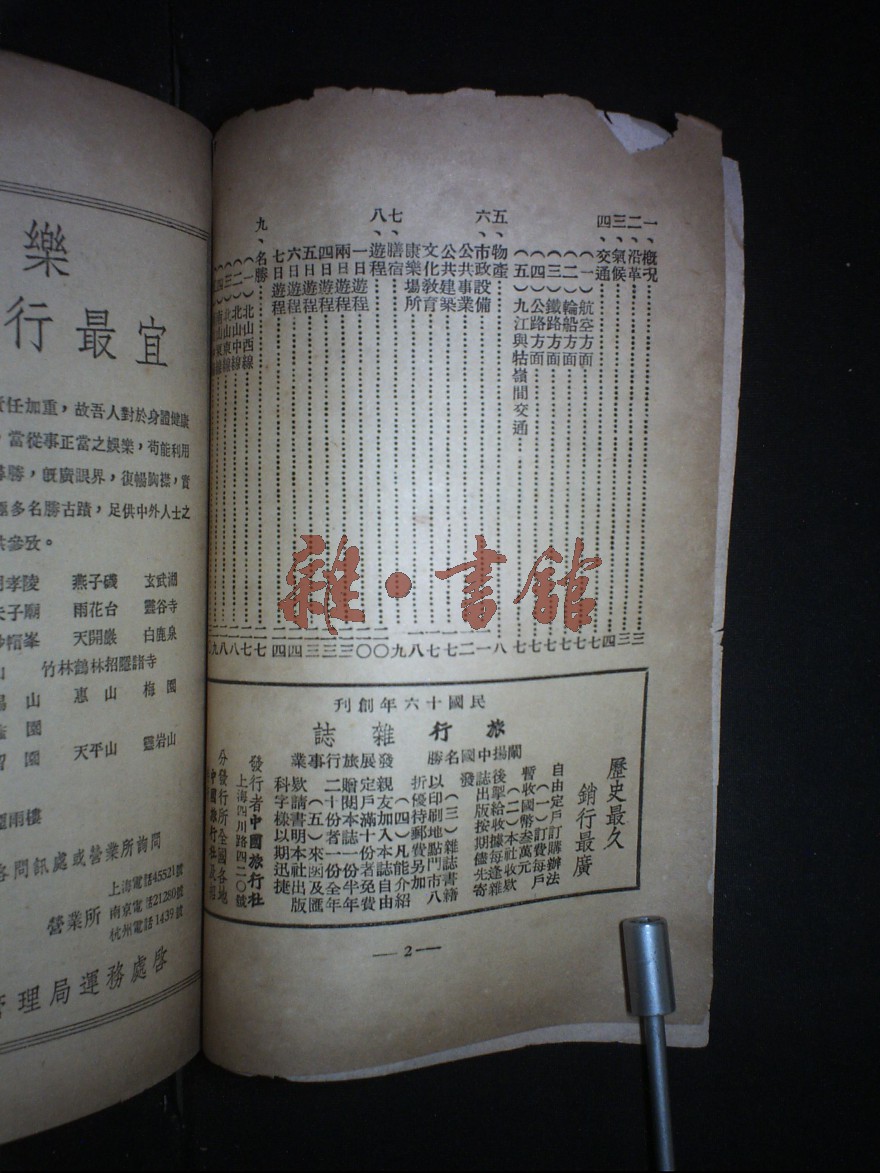 一、概況 三
二、沿革 三
三、氣候 四
四、交通 七
（一）航空方面 七
（二）輪船方面 七
（三）鐵路方面 七
（四）公路方面 七
（五）九江與牯嶺間交通 七
五、物產 八
六、市政設備
公共事業
公共建築
文化教育
康樂場所
七、膳宿
八、遊程
一日遊程
兩日遊程
四日遊程
五日遊程
六日遊程
七日遊程
九、名勝
（一）北山西線
（二）北山中線
（三）北山東線
民國十六年創刊
旅行雜誌
闡揚中國名勝 發展旅行事業
歷史最久
銷行最廣
自由定戶訂購辦法
（一）訂費每戶
暫收國幣叁萬元
（二）本社收款
後掣給收據每逢雜
誌出版按期儘先寄
發
（三）雜誌書籍
以印刷地點門市八
折優待郵費另加
（四）凡能介紹
親友加入本誌自由
定戶滿十份者免費
贈閱本誌一份半年
二十份者一份全年
（五）來函及匯
款請書明本社出版
科字樣以期迅捷
發行者中國旅行社
上海四川路四二〇號
分發行所全國各地
—2—
樂
行最宜
責任加重，故吾人對於身體健康
，當從事正當之娛樂，苟能利用
勝，既廣眼界，復暢胸襟，實
多名勝古蹟，足供中外人士之
參攷。
孝陵 燕子磯 玄武湖
夫子廟 雨花台 靈谷寺
紗帽峯 天開巖 白鹿泉
山 竹林鶴林招隱諸寺
山 惠山 梅園
園
園 天平山 靈岩山
雨樓
各問訊處或營業所詢問
營業所
上海電話45521號
南京電話21280號
杭州電話1439號
管理局運務處啓
雜·書館